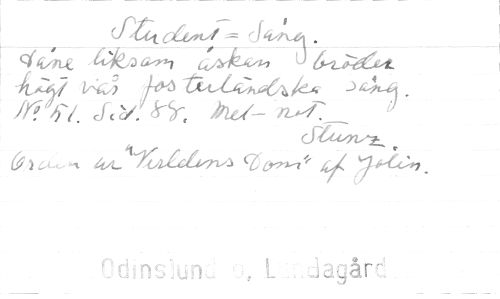 Student = Sång.
Dåne liksom åskan bröder
högt vår fosterländska sång.
No 51. Sid. 88. Mel-not.
Stunz.
Orden ur "Verldens Dom" af Jolin.
Odinslund o, Lundagård